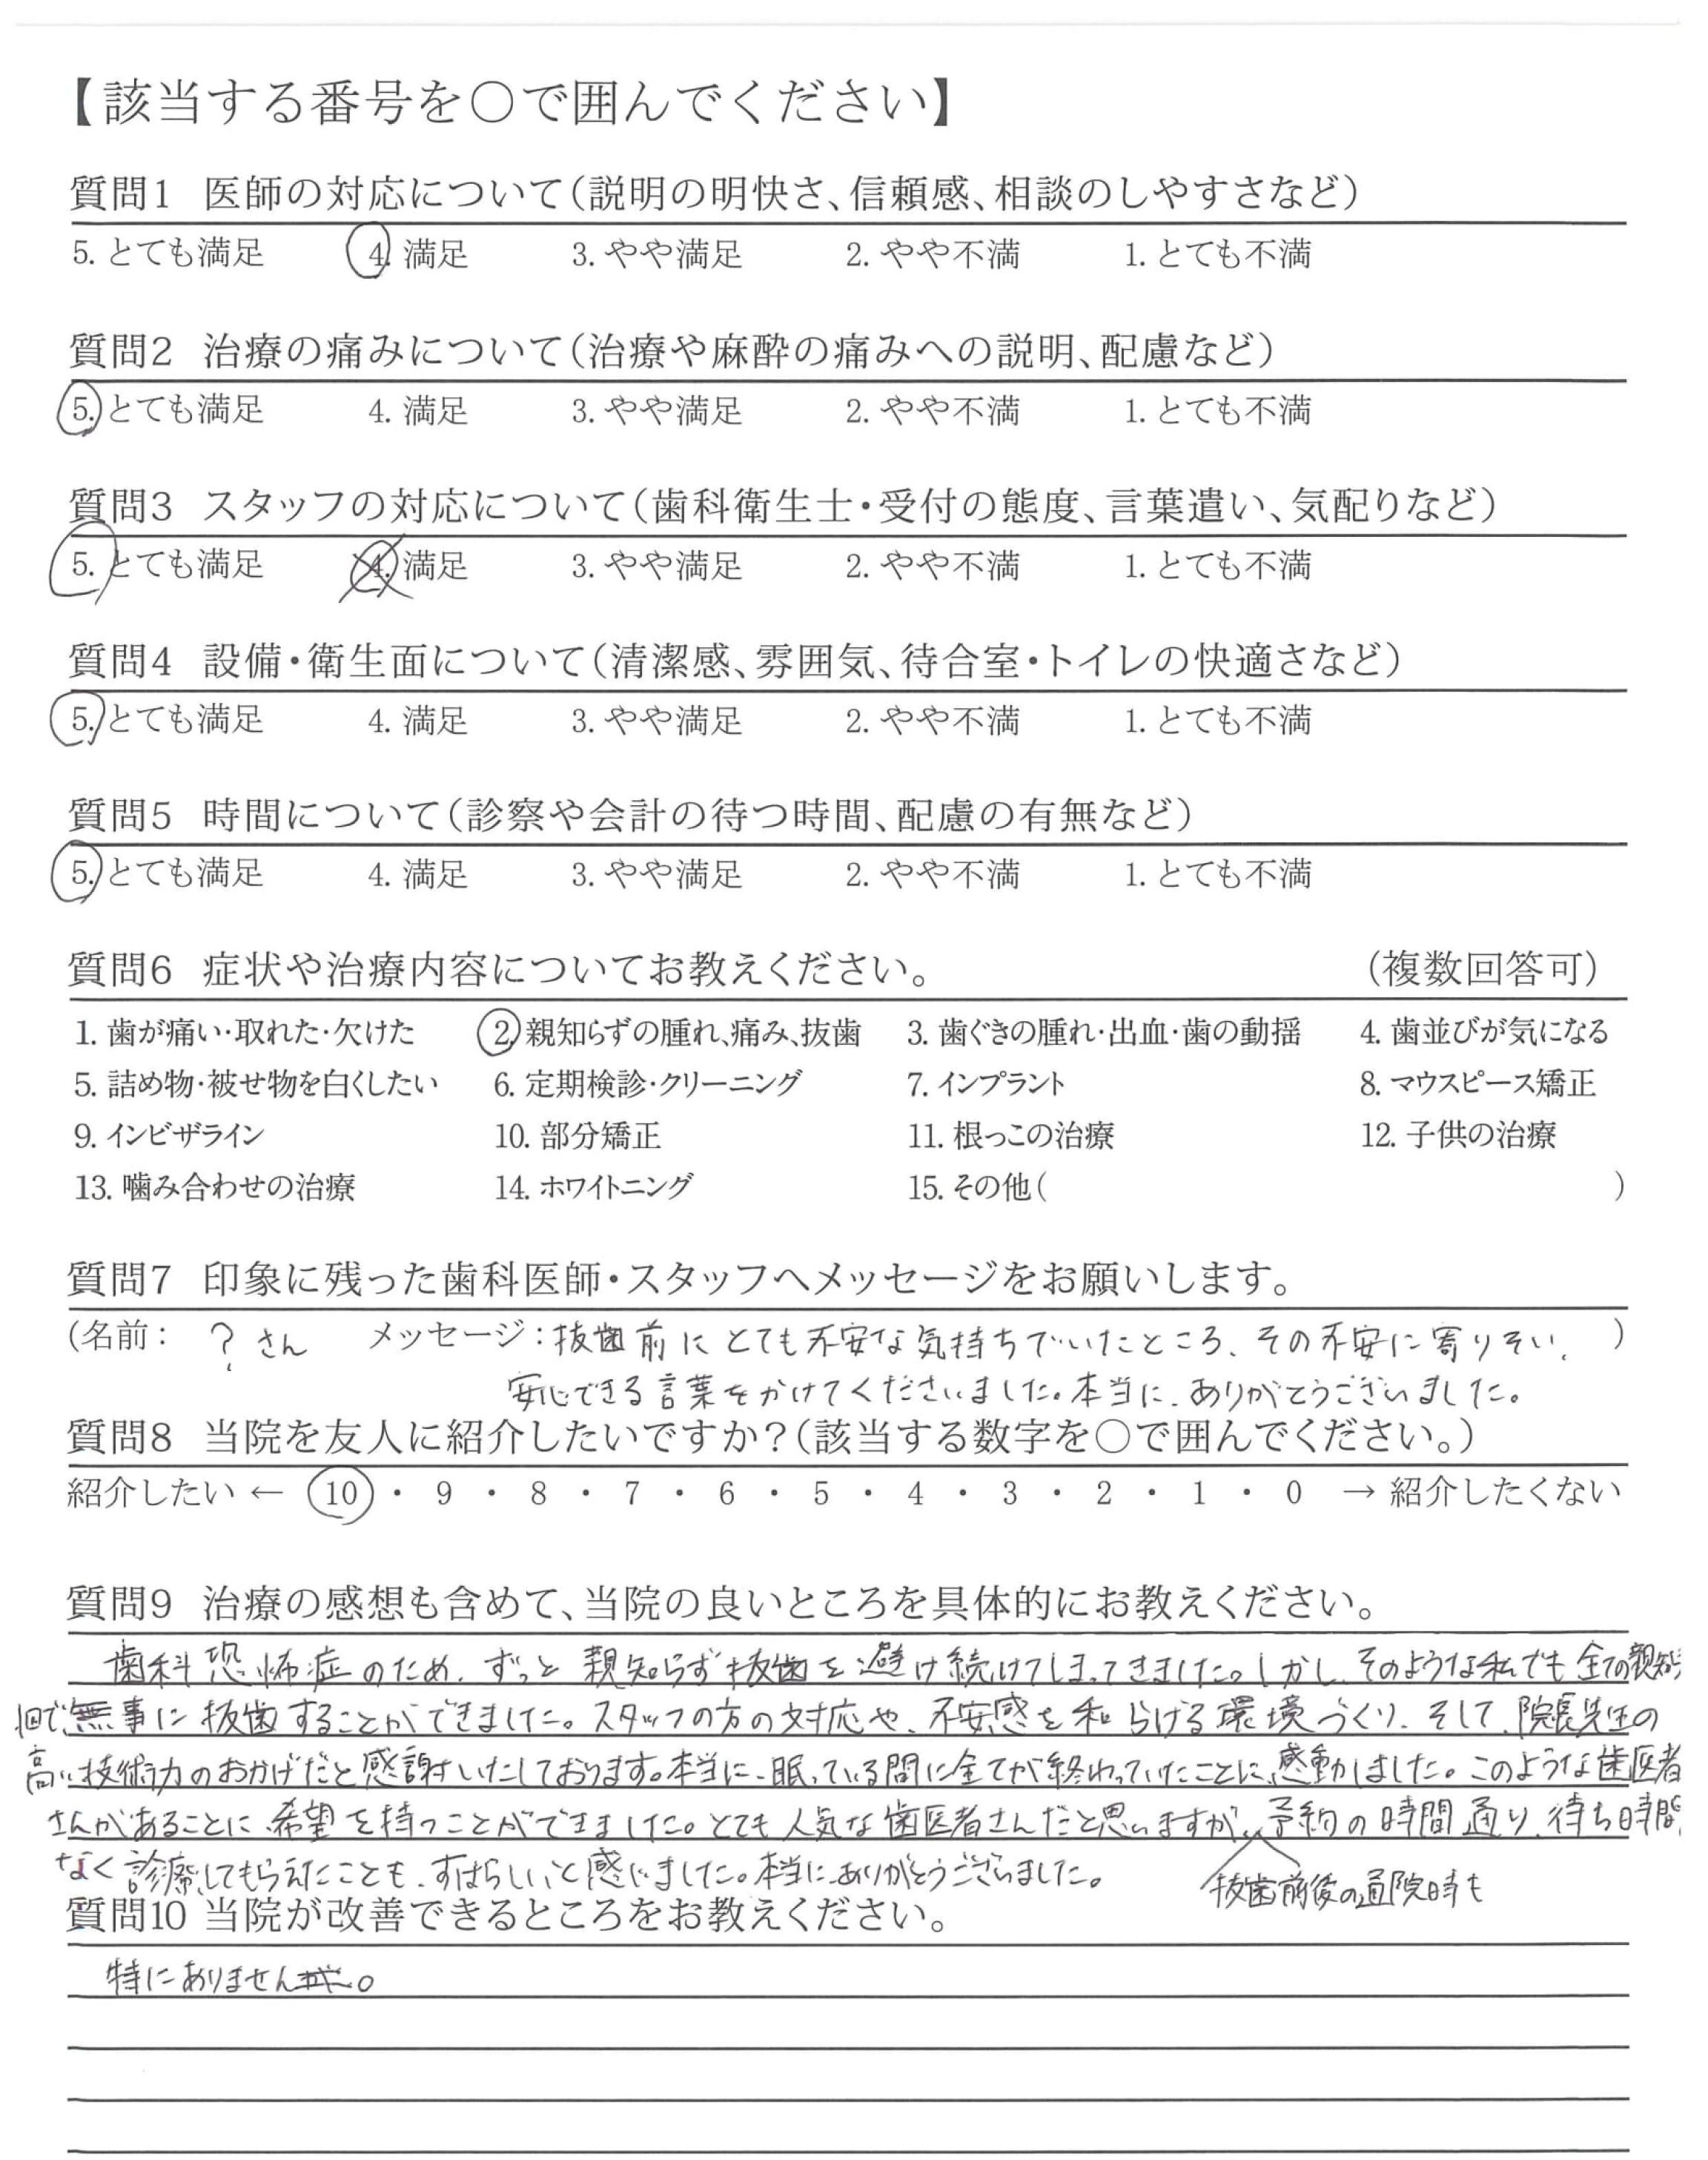 【該当する番号を○で囲んでください】
質問1 医師の対応について(説明の明快さ、信頼感、相談のしやすさなど)
5. とても満足 4. 満足 3. やや満足 2. やや不満 1. とても不満
質問2 治療の痛みについて(治療や麻酔の痛みへの説明、配慮など)
5. とても満足 4. 満足 3. やや満足 2. やや不満 1. とても不満
質問3 スタッフの対応について(歯科衛生士・受付の態度、言葉遣い、気配りなど)
5. とても満足 4. 満足 3. やや満足 2. やや不満 1. とても不満
質問4 設備・衛生面について(清潔感、雰囲気、待合室・トイレの快適さなど)
5. とても満足 4. 満足 3. やや満足 2. やや不満 1. とても不満
質問5 時間について(診察や会計の待つ時間、配慮の有無など)
5. とても満足 4. 満足 3. やや満足 2. やや不満 1. とても不満
質問6 症状や治療内容についてお教えください。 (複数回答可)
1. 歯が痛い・取れた・欠けた 2. 親知らずの腫れ、痛み、抜歯 3. 歯ぐきの腫れ・出血・歯の動揺 4. 歯並びが気になる
5. 詰め物・被せ物を白くしたい 6. 定期検診・クリーニング 7. インプラント 8. マウスピース矯正
9. インビザライン 10. 部分矯正 11. 根っこの治療 12. 子供の治療
13. 噛み合わせの治療 14. ホワイトニング 15. その他( )
質問7 印象に残った歯科医師・スタッフへメッセージをお願いします。
(名前: ? さん メッセージ:抜歯前にとても不安な気持ちでいたところ、その不安に寄りそい、 )
安心できる言葉をかけてくださいました。本当に、ありがとうございました。
質問8 当院を友人に紹介したいですか?(該当する数字を○で囲んでください。)
紹介したい ← 10 ・ 9 ・ 8 ・ 7 ・ 6 ・ 5 ・ 4 ・ 3 ・ 2 ・ 1 ・ 0 → 紹介したくない
質問9 治療の感想も含めて、当院の良いところを具体的にお教えください。
歯科恐怖症のため、ずっと親知らず抜歯を避け続けてしまってきました。しかし、そのような私でも全ての親知らず
1回で、無事に抜歯することができました。スタッフの方の対応や、不安感を和らげる環境づくり、そして、院長先生の
高い技術力のおかげだと感謝いたしております。本当に、眠っている間に全てが終わっていたことに、感動しました。このような歯医者
さんがあることに、希望を持つことができました。とても人気な歯医者さんだと思いますが、予約の時間通り、待ち時間
抜歯前後の通院時も
なく診療してもらえたことも、すばらしいと感じました。本当にありがとうございました。
質問10 当院が改善できるところをお教えください。
特にありません。